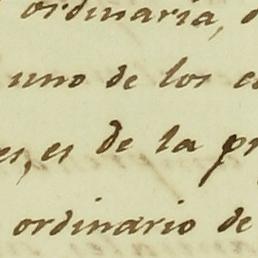 ordinaria,
uno de los
es, es de la pr
ordinario de